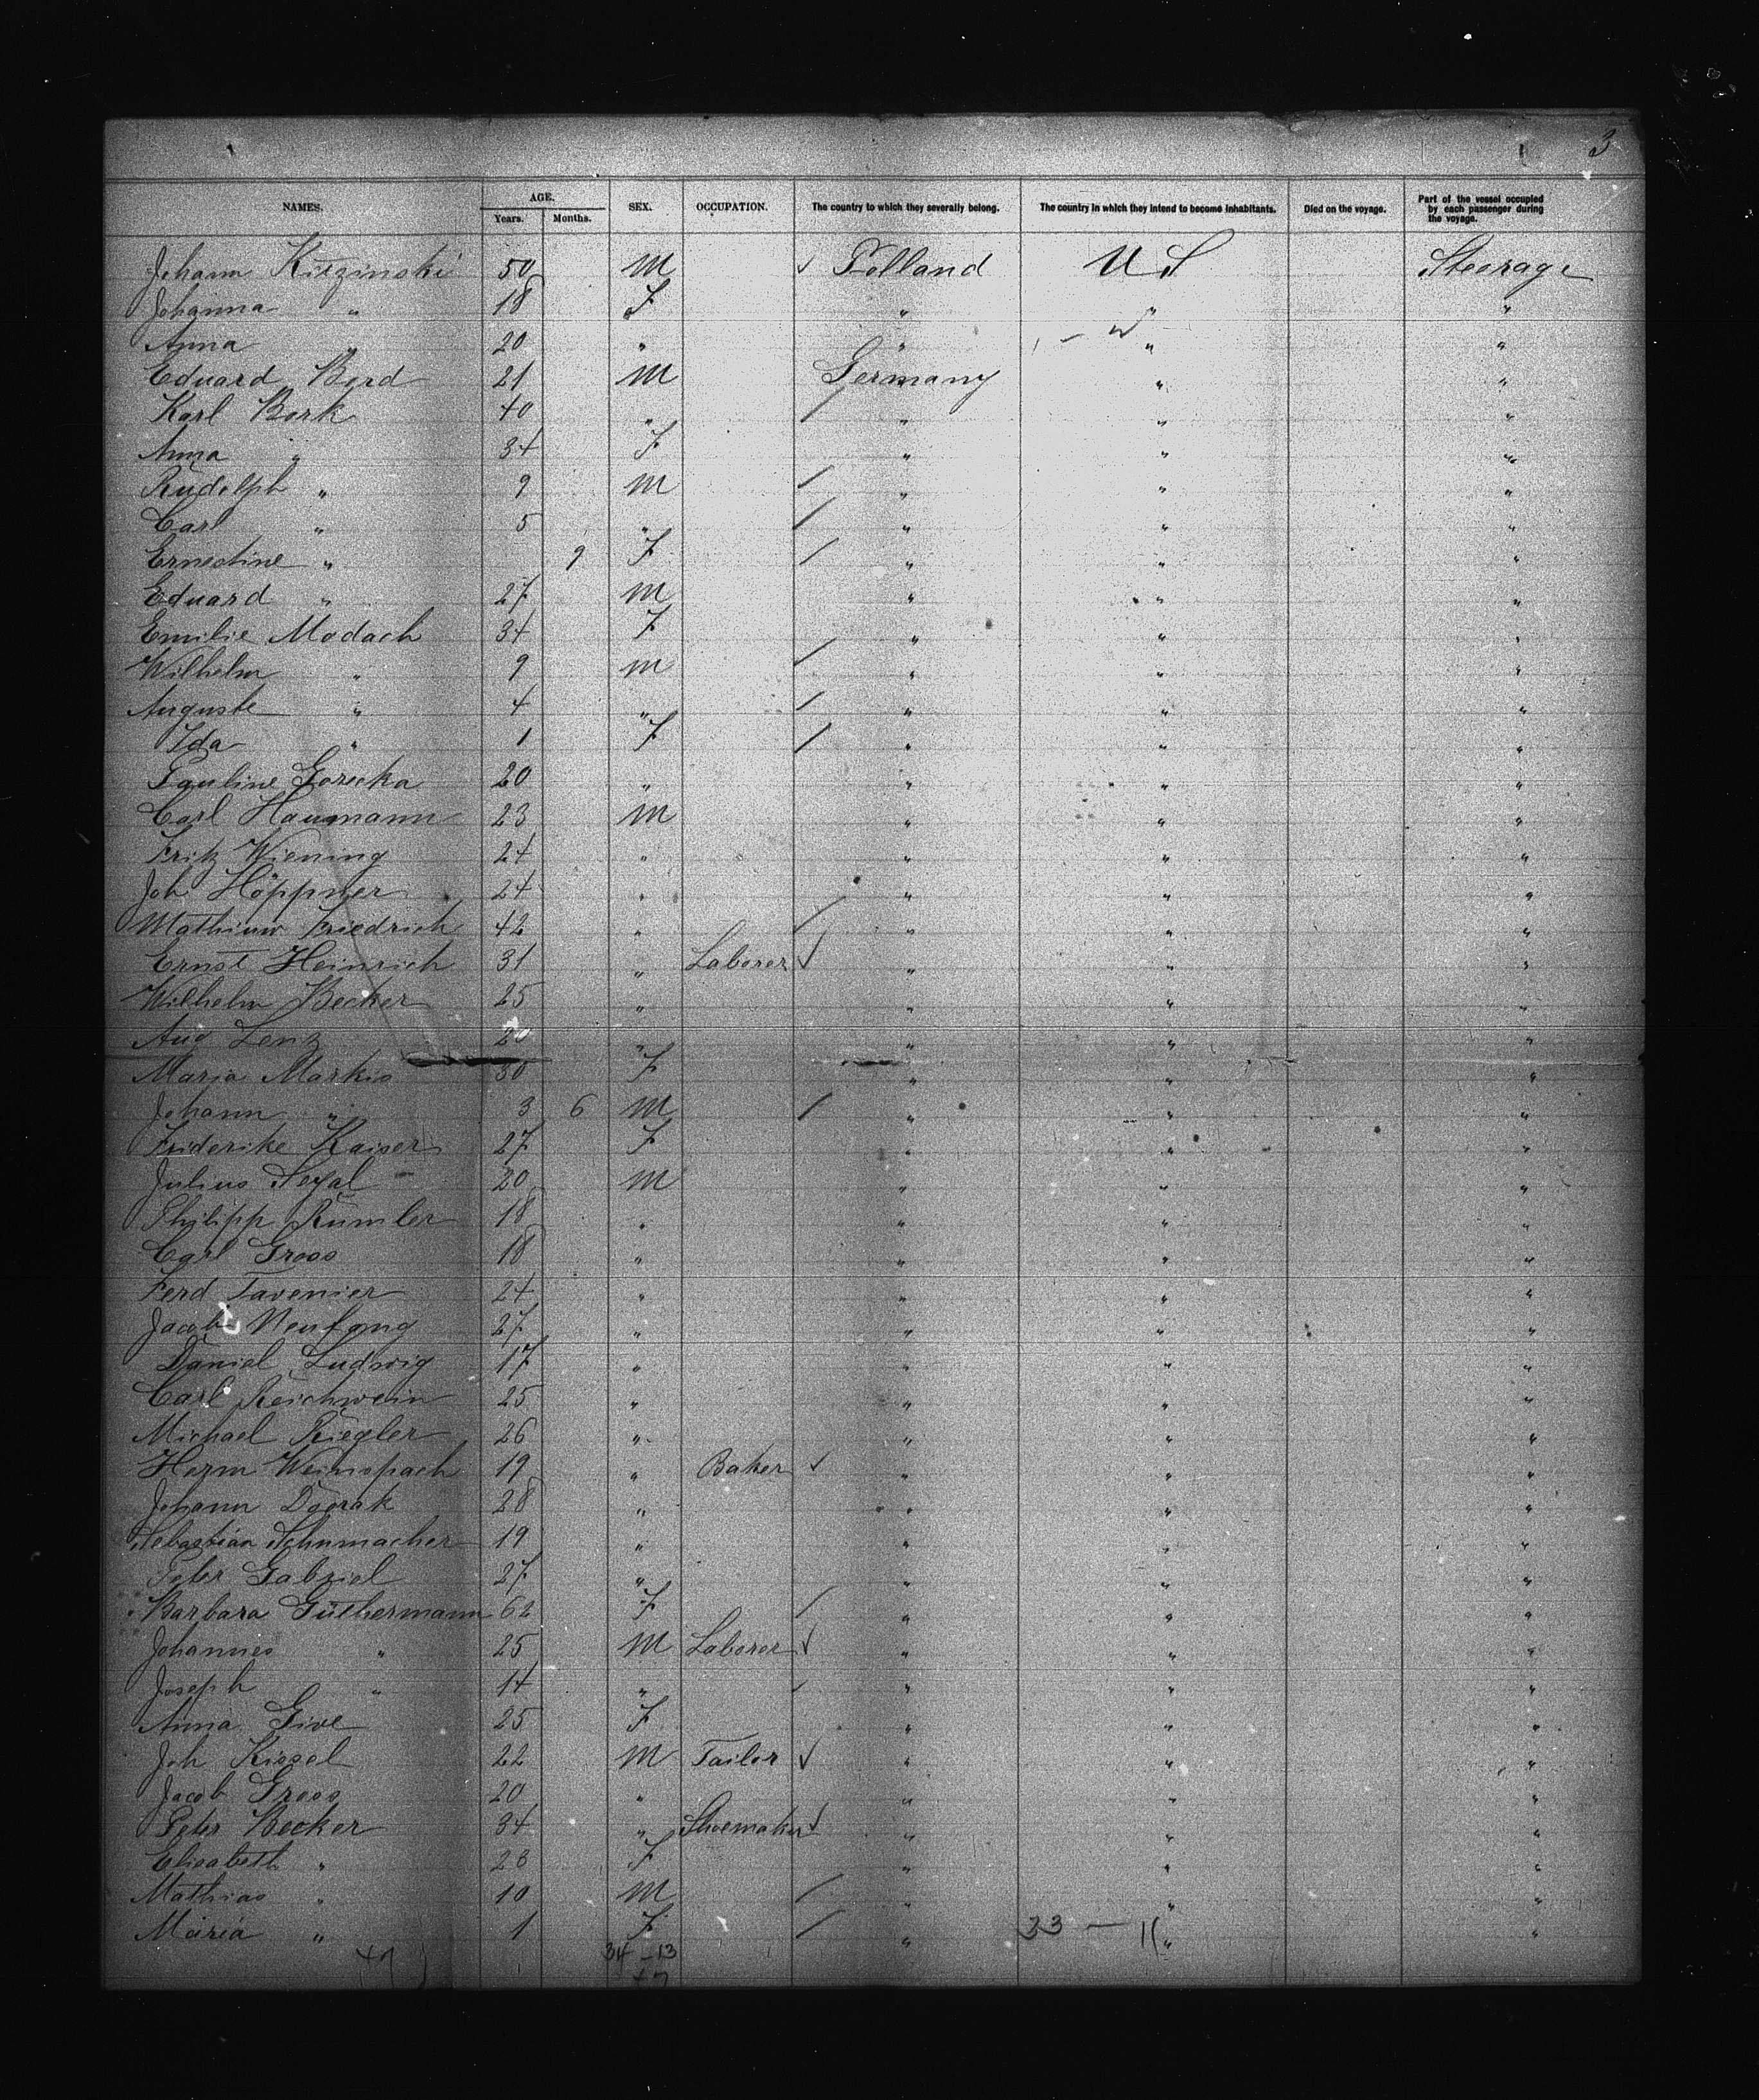 3
NAMES. AGE. Years. Months. SEX. OCCUPATION. The country to which they severally belong. The country in which they intend to become inhabitants. Died on the voyage. Part of the vessel occupied by each passenger during the voyage.
Johann Kitzinski 50 M Polland U S Steerage
Johanna " 18 F " " "
Anna " 20 " " " "
Eduard Bord 21 M Germany " "
Karl Bork 40 " " " "
Anna " 34 F " " "
Rudolph " 9 M " " "
Carl " 5 " " " "
Ernestine " 9 F " " "
Eduard " 27 M " " "
Emilie Modach 34 F " " "
Wilhelm " 9 M " " "
Auguste " 4 " " " "
Ida " 1 F " " "
Pauline Gorecka 20 " " " "
Carl Haumann 23 M " " "
Fritz Wiening 24 " " " "
Joh Höppner 24 " " " "
Friedrich 42 " " " "
Ernst Heinrich 31 " Laborer " " "
Wilhelm Becker 25 " " " "
Aug Lenz 20 " " " "
Maria Markis 30 F " " "
Johann " 3 6 M " " "
Friderike Kaiser 27 F " " "
Julius Segal 20 M " " "
Philipp Rumler 18 " " " "
Carl Gross 18 " " " "
Ferd Tavenier 24 " " " "
Jacob Neufang 27 " " " "
Daniel Ludwig 17 " " " "
Carl Reichwein 25 " " " "
Michael Riegler 26 " " " "
Herm Weinspach 19 " Baker " " "
Johann Dvorak 28 " " " "
Sebastian Schumacher 19 " " " "
Peter Gabriel 27 " " " "
Barbara Güthermann 62 F " " "
Johannes " 25 M Laborer " " "
Joseph " 14 " " " "
Anna Give 25 F " " "
Joh Kiesel 22 M Tailor " " "
Jacob Gross 20 " " " "
Peter Becker 34 " Shoemaker " " "
Elisabeth " 28 F " " "
Mathias " 10 M " " "
Maria " 1 F " 23 — 11 " "
47 34 – 13
47